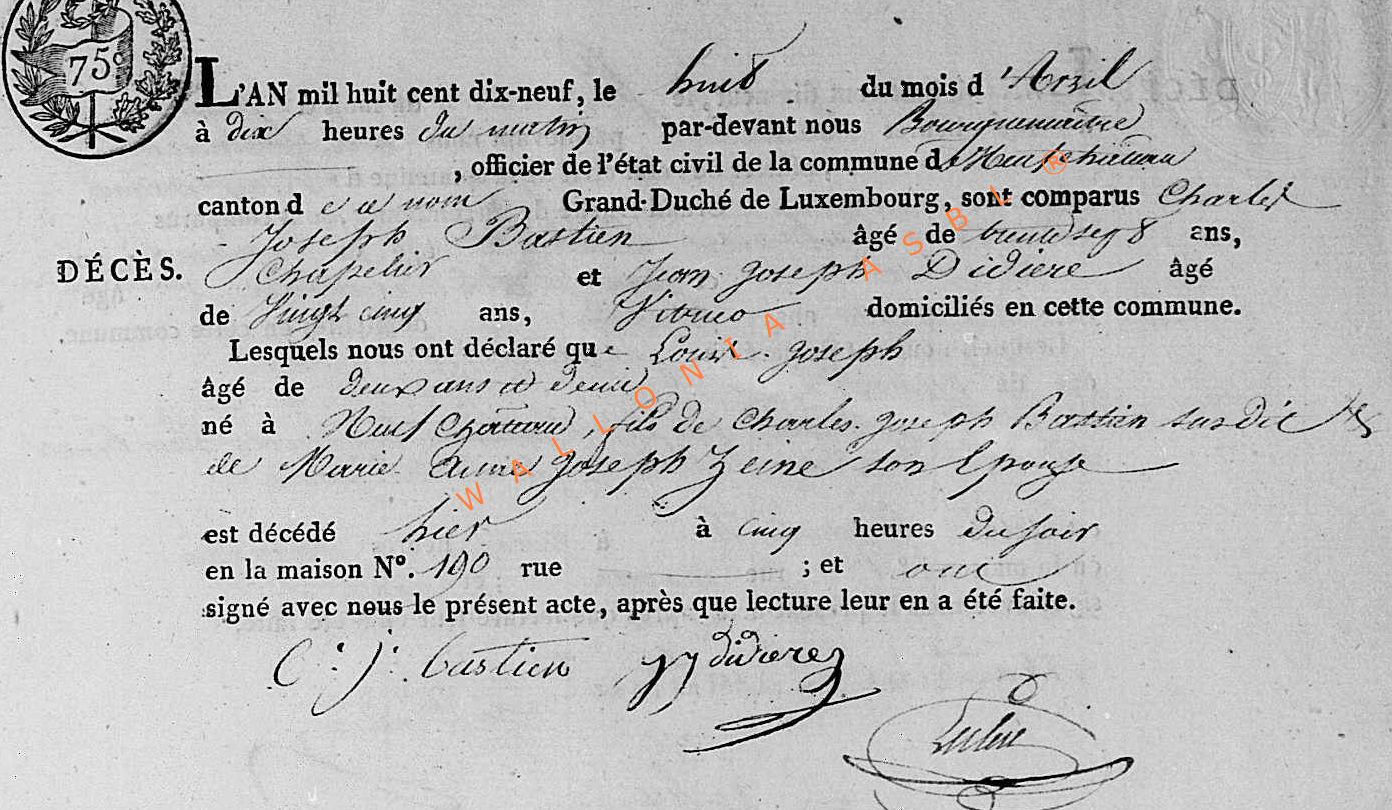 75c
L'AN mil huit cent dix-neuf, le huit du mois d'Avril
à dix heures du matin par-devant nous Bourguemaitre
, officier de l'état civil de la commune de Neufchateau
canton de ce nom Grand-Duché de Luxembourg, sont comparus Charles
Joseph Bastien âgé de ans,
DÉCÈS. Chapelier et Jean Joseph Didiere âgé
de Vingt cinq ans, domiciliés en cette commune.
Lesquels nous ont déclaré que Louis Joseph
âgé de deux ans et demi
né à Neufchateau, fils de Charles Joseph Bastien susdit &
de Marie Anne Joseph Zeine son Epouse
est décédé hier à cinq heures du soir
en la maison N°. 190 rue ; et ont
signé avec nous le présent acte, après que lecture leur en a été faite.
C: J: bastien JJ didiere
WALLONIA ASBL ®